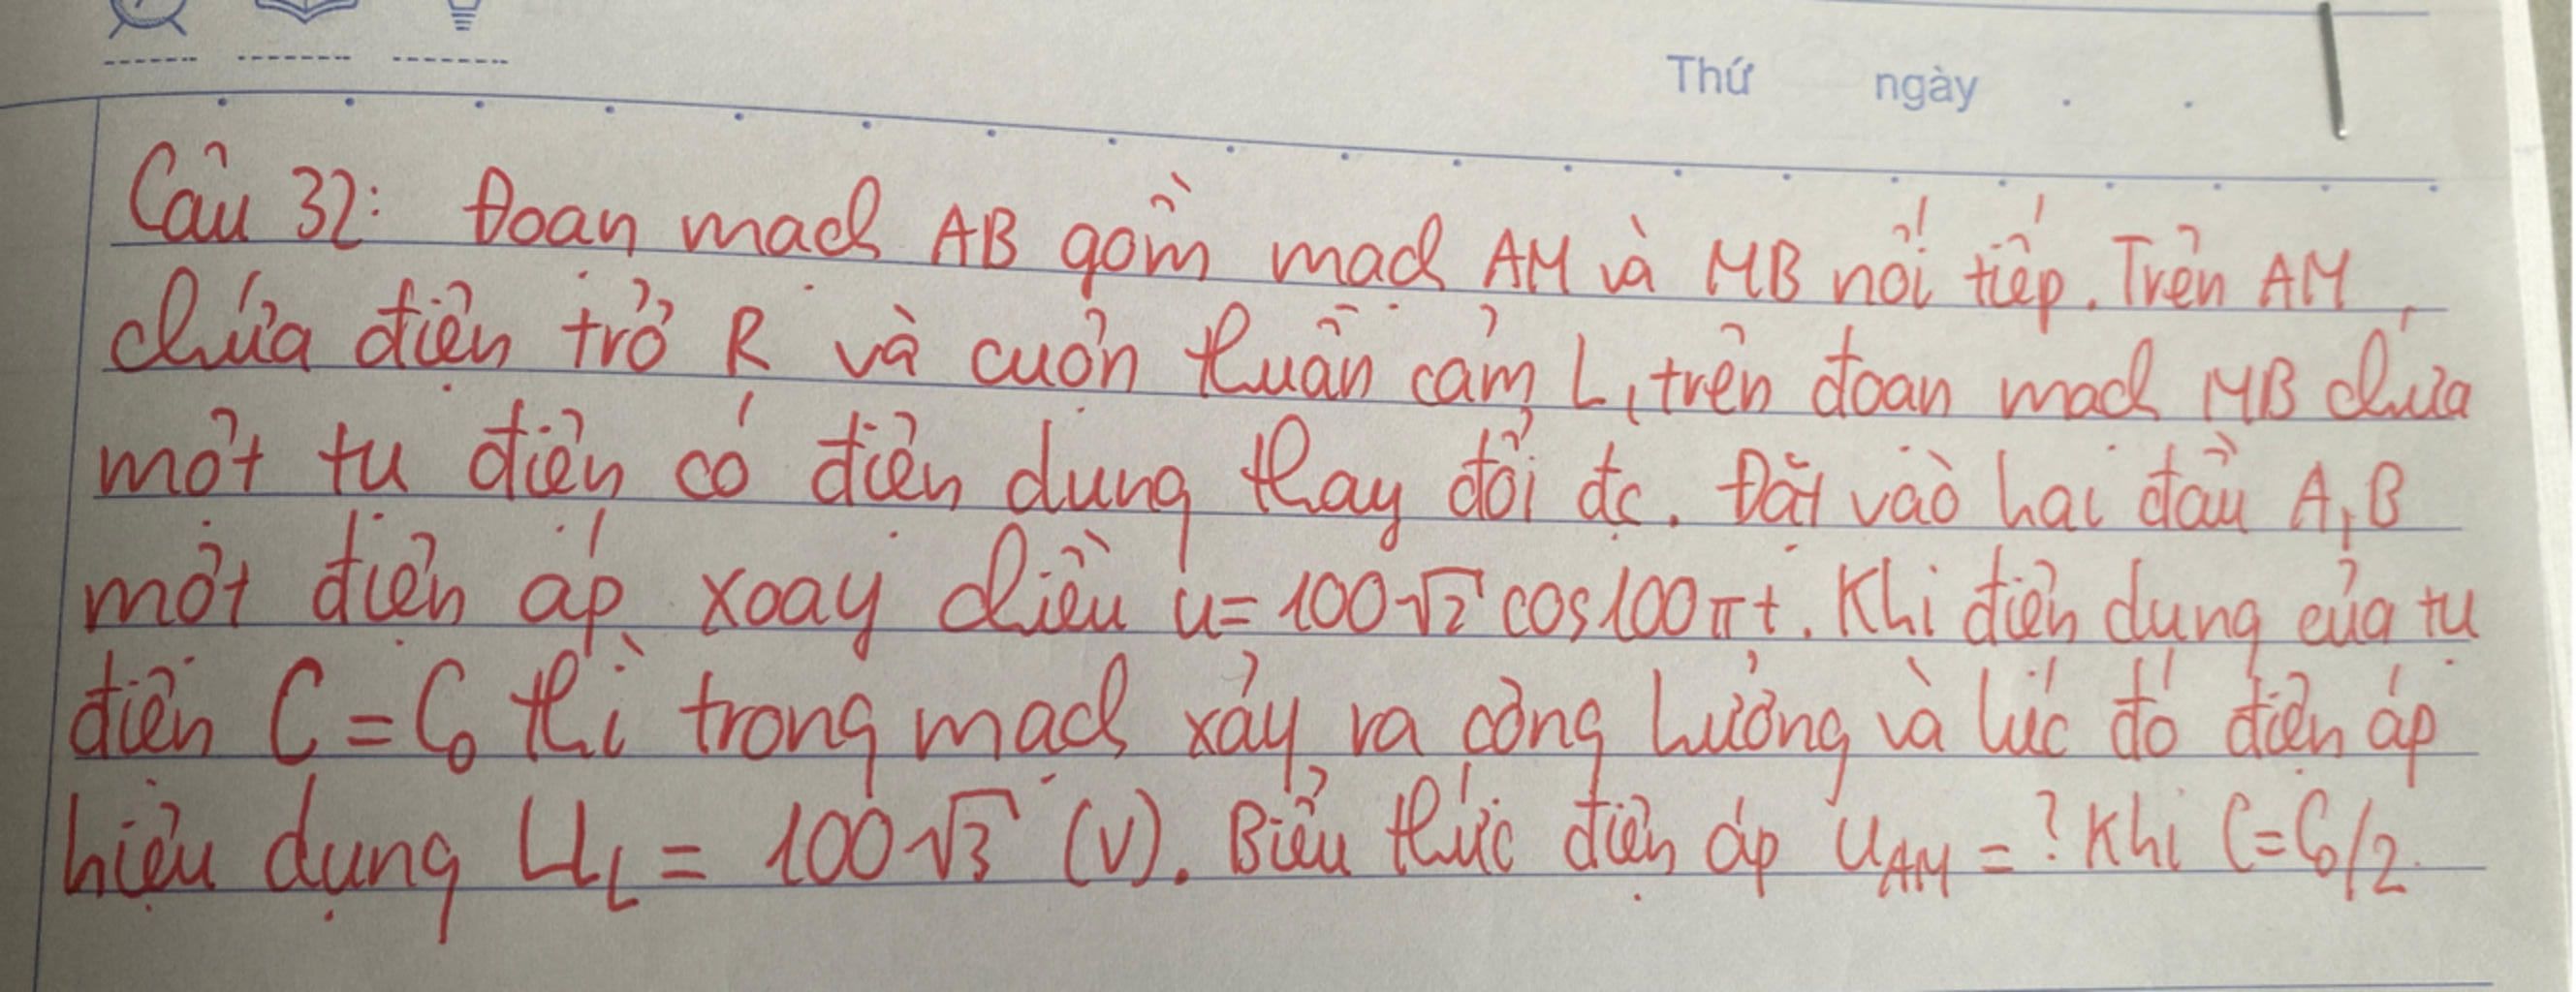 Thứ ngày . .
Câu 32: Đoạn mạch AB gồm mạch AM và MB nối tiếp. Trên AM
chứa điện trở R và cuộn thuần cảm L, trên đoạn mạch MB chứa
một tụ điện có điện dung thay đổi đc. Đặt vào hai đầu A, B
một điện áp xoay chiều u = 100√2 cos100πt. Khi điện dung của tụ
điện C = C₀ thì trong mạch xảy ra cộng hưởng và lúc đó điện áp
hiệu dụng U_L = 100√3 (V). Biểu thức điện áp u_AM = ? Khi C = C₀/2.